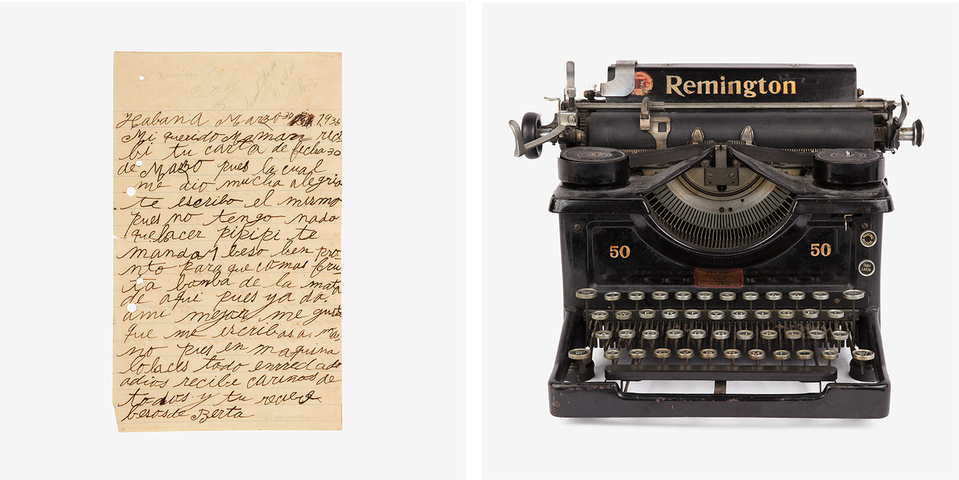 Habana Marzo 30 1934
Mi querido Maman reci
bi tu carta de fecha 30
de Marzo pues la cual
me dio mucha alegria
te escribo el mismo
pues no tengo nada
que hacer pipipi te
manda 1 beso ben pro
nto para que comas fru
ta bomba de la mata
de aqui pues ya da.
ami mejor me gusta
que me escribas a ma
no pues en maquina
lo haces todo enrredado
adios recibe cariños de
todos y tu recibe
besos de Berta
Remington
50
50